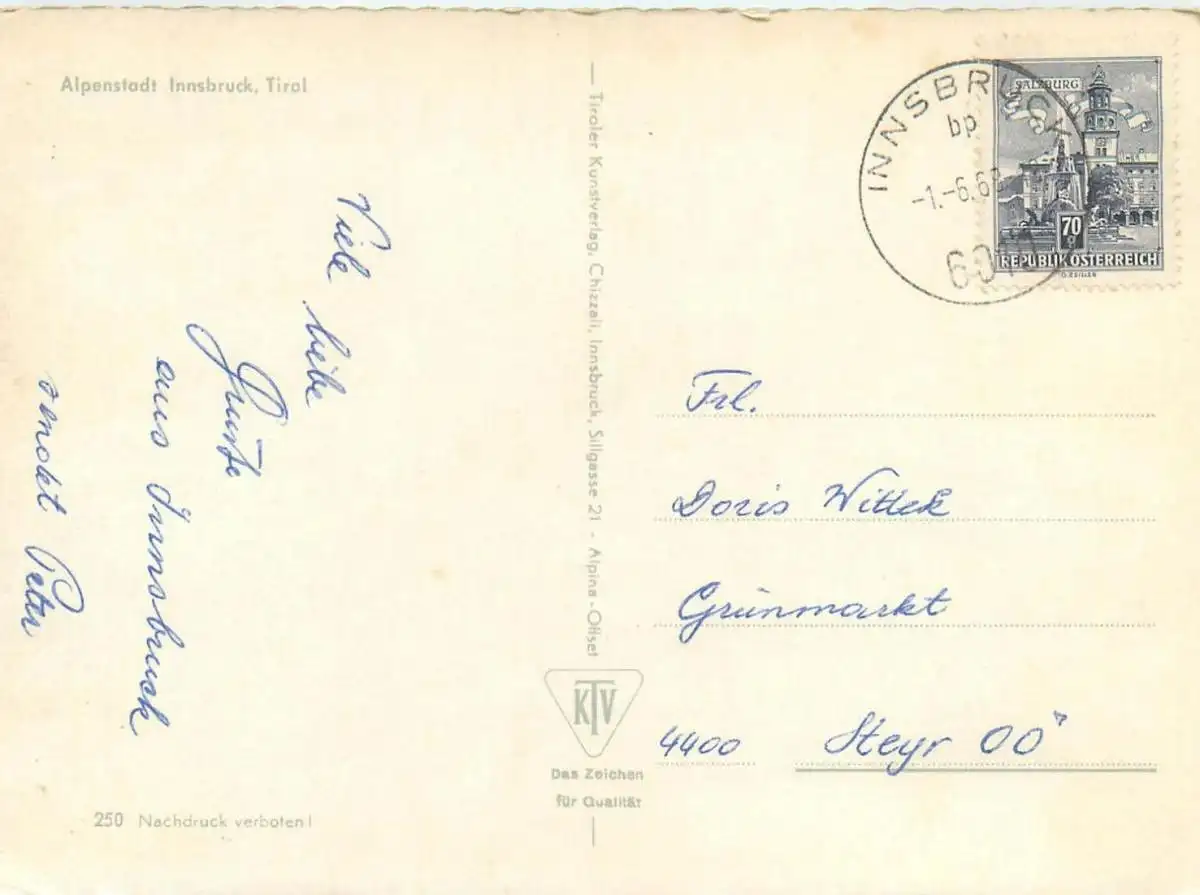 Alpenstadt Innsbruck, Tirol
Viele liebe
Grüße
aus Innsbruck
sendet Peter
250 Nachdruck verboten!
Tiroler Kunstverlag, Chizzali, Innsbruck, Sillgasse 21 - Alpina-Offset
KTV
Das Zeichen
für Qualität
INNSBRUCK
bp
-1.-6.68
6010
SALZBURG
70 g
REPUBLIK ÖSTERREICH
Frl.
Doris Wittek
Grünmarkt
4400 Steyr OÖ